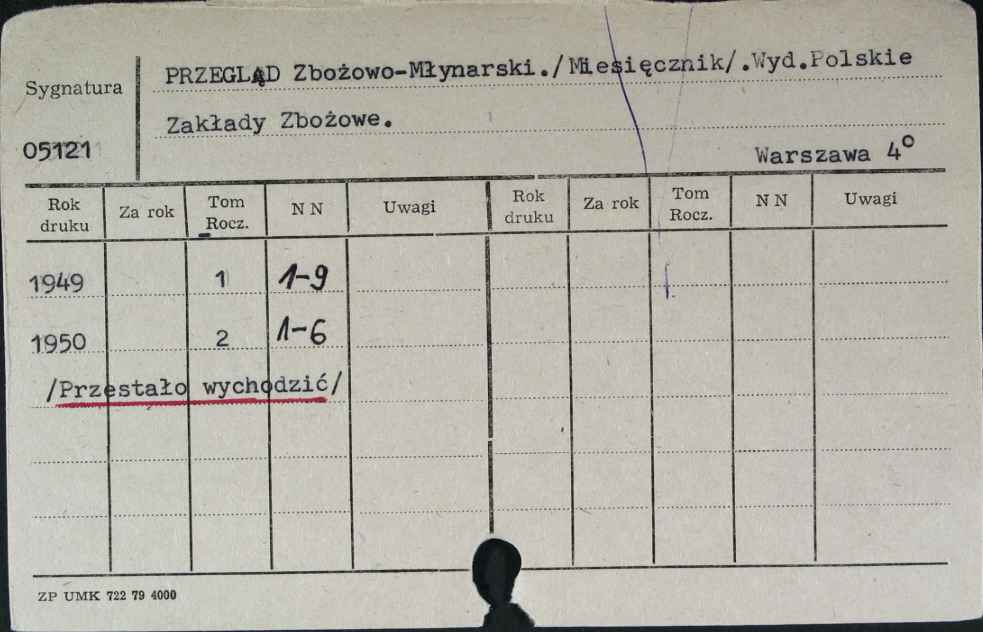 PRZEGLĄD Zbożowo-Młynarski./Miesięcznik/.Wyd.Polskie
Sygnatura
Zakłady Zbożowe.
05121
Warszawa 4°
Rok druku Za rok Tom Rocz. N N Uwagi Rok druku Za rok Tom Rocz. N N Uwagi
1949 1 1-9
1950 2 1-6
/Przestało wychodzić/
ZP UMK 722 79 4000